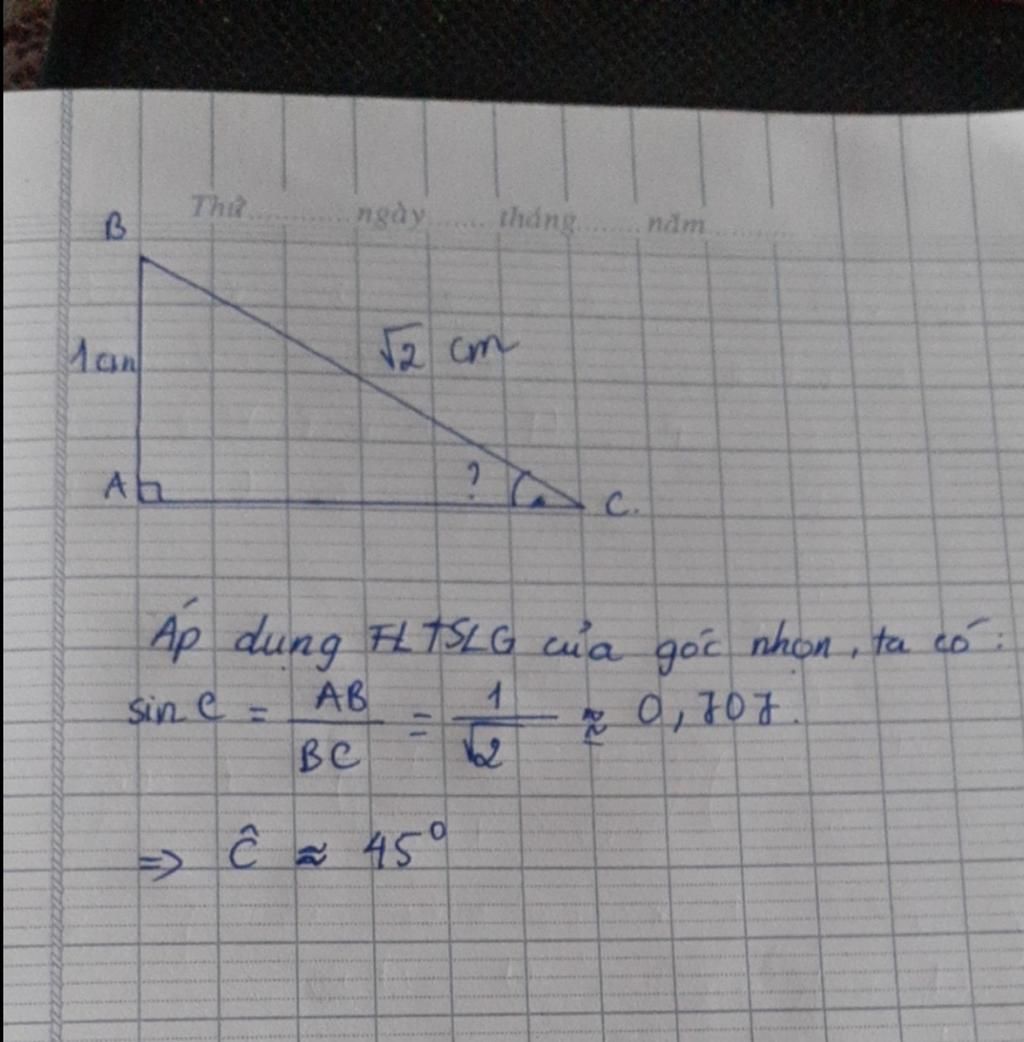 Thứ........... ngày....... tháng........ năm...........
B
1 cm
√2 cm
A
?
C.
Áp dụng TLTSLG của góc nhọn, ta có:
sin C = AB/BC = 1/√2 ≈ 0,707.
=> Ĉ ≈ 45°